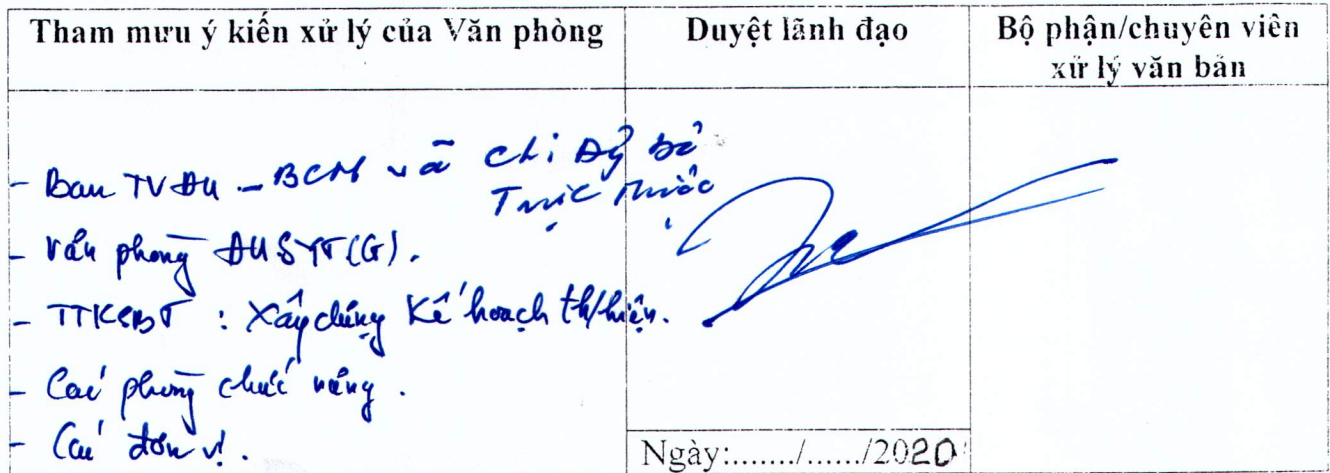 Tham mưu ý kiến xử lý của Văn phòng
Duyệt lãnh đạo
Bộ phận/chuyên viên
xử lý văn bản
- Ban TVĐU - BCH và Chi Đg bộ
Trực thuộc
- Văn phòng ĐUSYT(G).
- TTKSBT : Xây dựng Kế hoạch th/hiện.
- Các phòng chức năng.
- Các đơn vị.
Ngày:....../....../2020